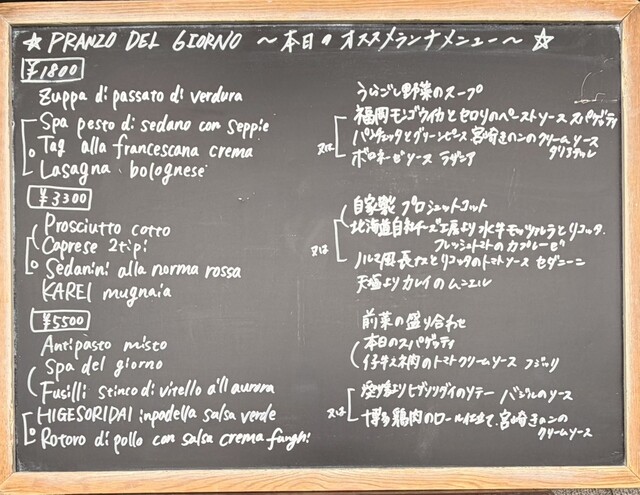 ☆ PRANZO DEL GIORNO ～本日のオススメランチメニュー～ ☆
¥1800
Zuppa di passato di verdura
うらごし野菜のスープ
Spa pesto di sedano con seppie
福岡モンゴウイカとセロリのペーストソース スパゲティ
o Tag alla francescana crema
又は パンチェッタとグリーンピース、宮崎きのこのクリームソース タリアテッレ
Lasagna bolognese
ボロネーゼソース ラザニア
¥3300
Prosciutto cotto
自家製 プロシュットコット
Caprese 2tipi
北海道自社チーズ工房より水牛モッツァレラとリコッタ、
フレッシュトマトのカプレーゼ
o Sedanini alla norma rossa
又は 岡長ナスとリコッタのトマトソース セダニーニ
KAREI mugnaia
天塩よりカレイのムニエル
¥5500
Antipasto misto
前菜の盛り合わせ
Spa del giorno
本日のスパゲティ
Fusilli stinco di vitello all'aurora
仔牛スネ肉のトマトクリームソース フジッリ
HIGESORIDAI inpadella salsa verde
よりヒゲソリダイのソテー バジルのソース
o Rotoro di pollo con salsa crema funghi
又は 博多鶏肉のロール仕立て、宮崎きのこの
クリームソース